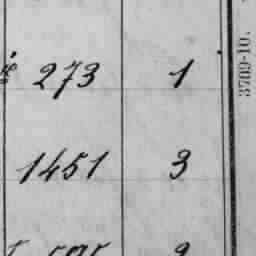 273 1
1451 3
3709-10.